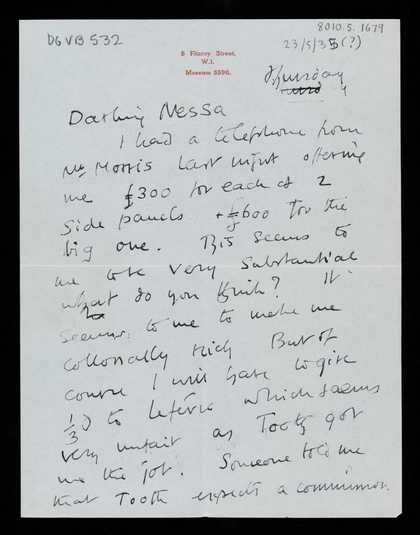 DG VB 532
8010.5.1679
23/5/35(?)
8 Fitzroy Street,
W.1.
Museum 5596.
Thursday
Darling Nessa
I had a telephone from
Mr Morris last night offering
me £300 for each of 2
side panels + £600 for the
big one. This seems to
me to be very substantial
what do you think? It
seems to me to make me
collosally rich But of
course I will have to give
1/3) to Lefévre which seems
very unfair as Tooth got
me the job. Someone told me
that Tooth expects a commission.